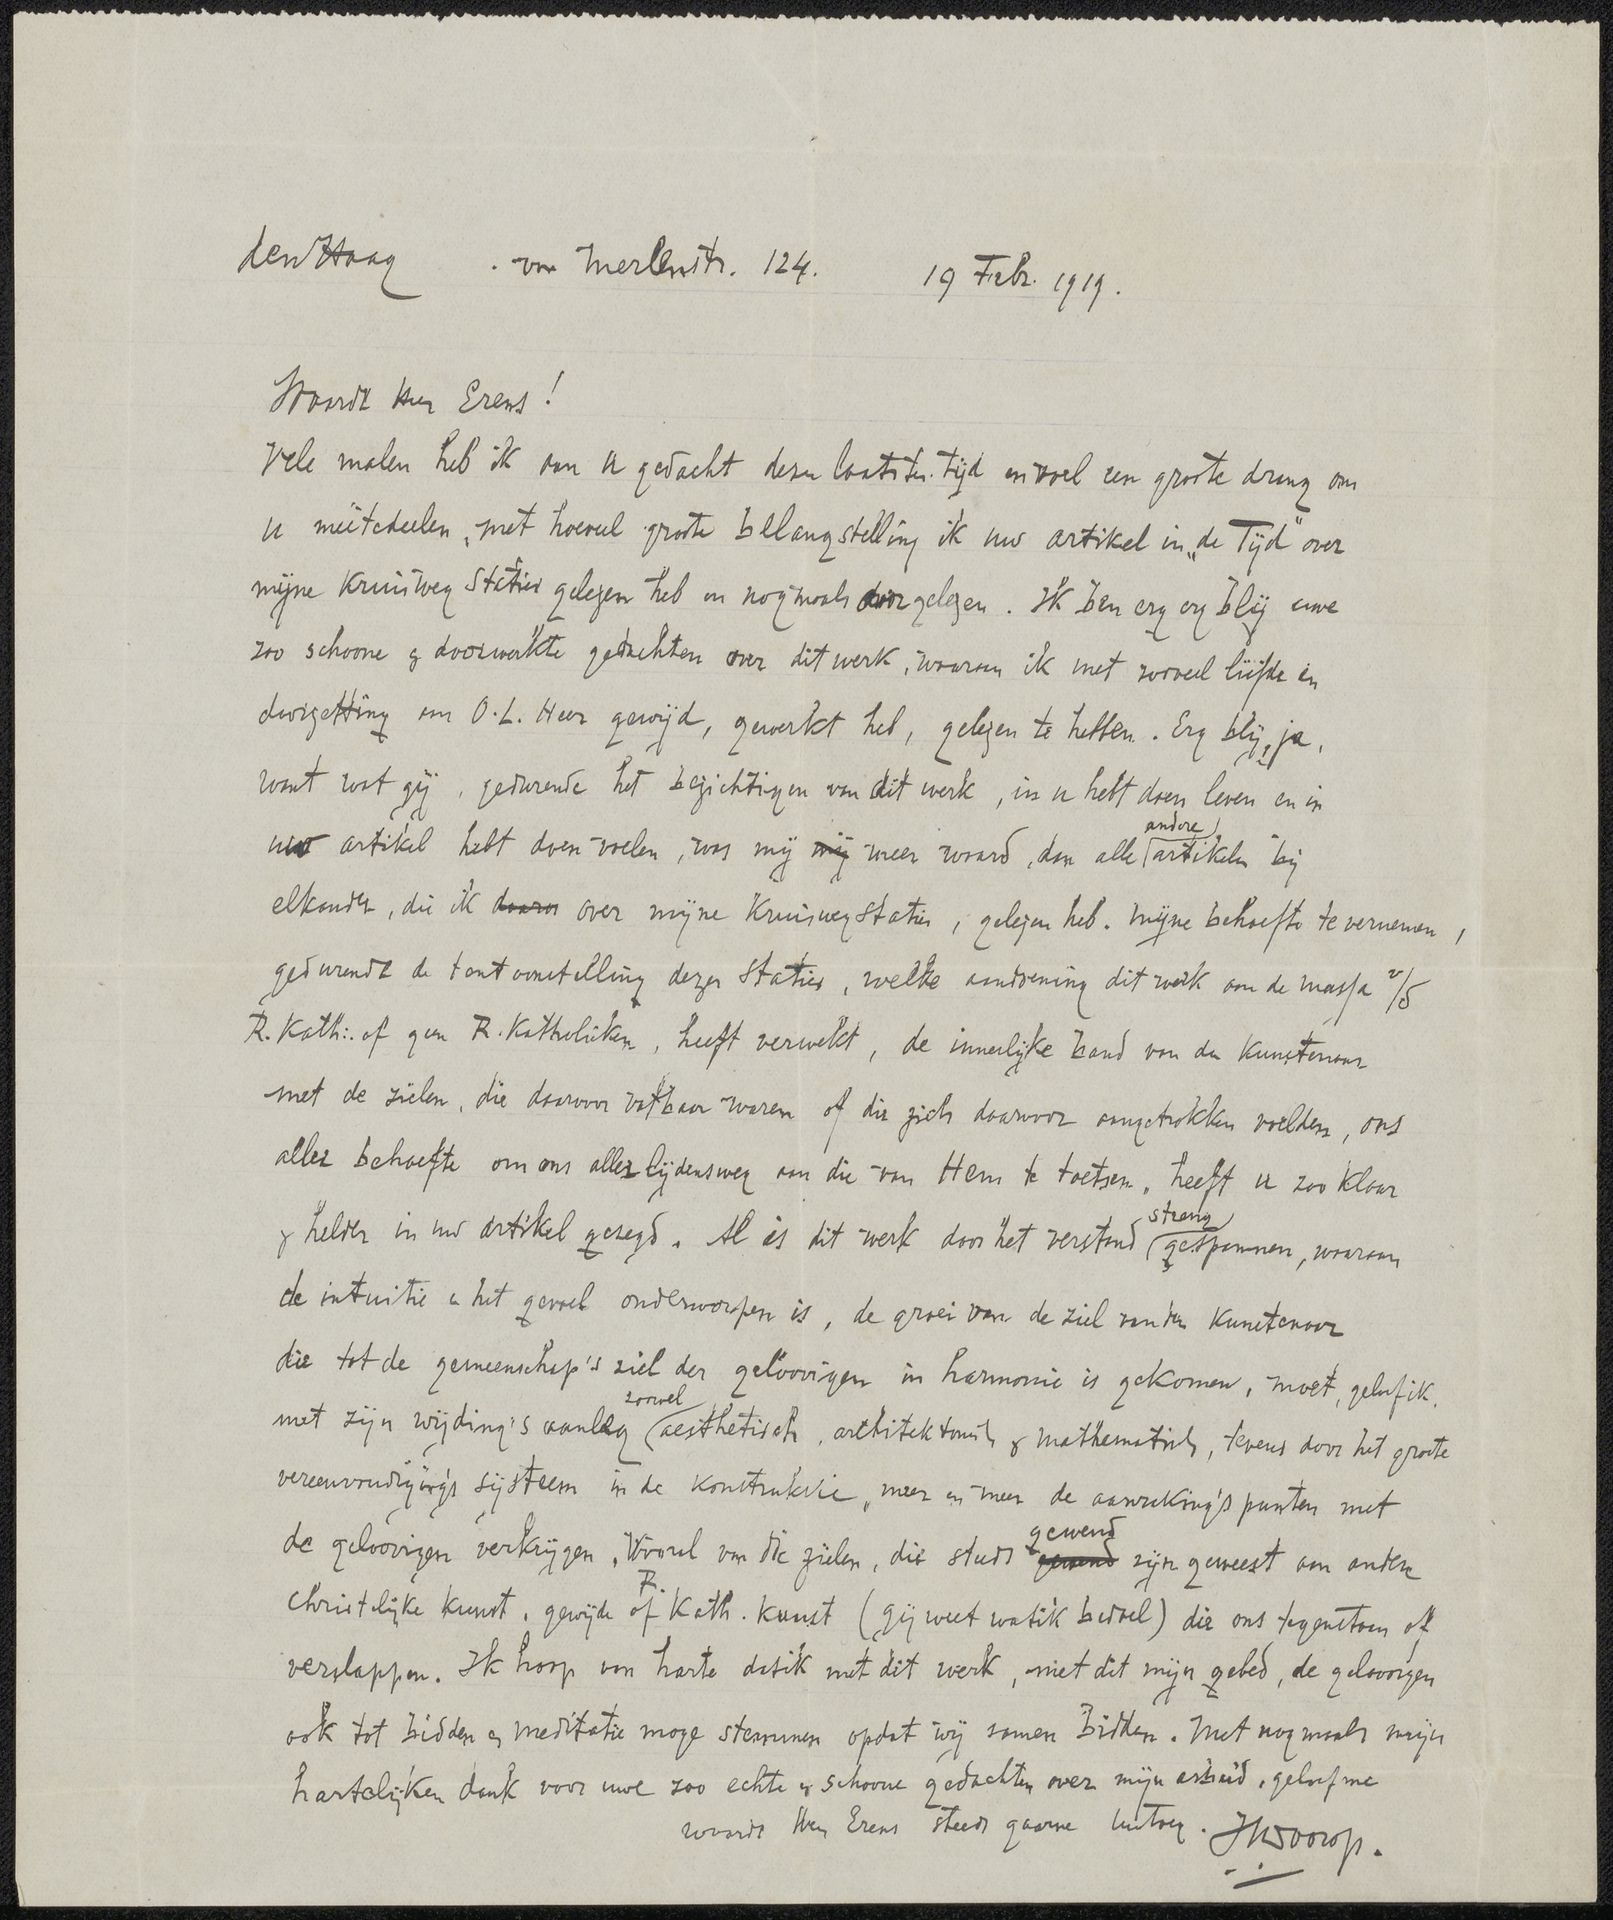 den Haag . van Merlenstr. 124. 19 Febr. 1919.
Waarde Heer Erens!
Vele malen heb ik aan u gedacht dezen laatsten tijd en voel een groote drang om
u meetedeelen, met hoeveel groote belangstelling ik uw artikel in „de Tijd" over
mijne Kruisweg Staties gelezen heb en nogmaals doorgelezen. Ik ben erg erg blij uwe
zoo schoone & doorwerkte gedachten over dit werk, waaraan ik met zooveel liefde en
doorzetting aan O.L. Heer gewijd, gewerkt heb, gelezen te hebben. Erg blij, ja,
want wat gij, gedurende het bezichtigen van dit werk, in u hebt doen leven en in
uw artikel hebt doen voelen, was mij mij meer waard, dan alle andere artikelen bij
elkander, die ik daarov over mijne Kruisweg Staties, gelezen heb. Mijne behoefte te vernemen,
gedurende de tentoonstelling dezer Staties, welke aandoening dit werk aan de massa v/d
R. Kath:. of geen R. Katholieken, heeft verwekt, de innerlijke band van den Kunstenaar
met de zielen, die daarvoor vatbaar waren of die zich daarvoor aangetrokken voelden, ons
aller behoefte om ons aller lijdensweg aan die van Hem te toetsen, heeft u zoo klaar
& helder in uw artikel gezegd. Al is dit werk door het verstand streng gespannen, waaraan
de intuitie & het gevoel onderworpen is, de groei van de ziel van den Kunstenaar
die tot de gemeenschap's ziel der geloovigen in harmonie is gekomen, moet, geloof ik,
met zijn wijding's aanleg zoowel aesthetisch, architektonisch & mathematisch, tevens door het groote
vereenvoudiging's systeem in de konstruktie, meer en meer de aanraking's punten met
de geloovigen verkrijgen, Vooral van die zielen, die steeds gewend gewend zijn geweest aan andere
christelijke kunst, gewijde of R. Kath. kunst (gij weet wat ik bedoel) die ons tegenstaan of
verslappen. Ik hoop van harte dat ik met dit werk, met dit mijn gebed, de geloovigen
ook tot bidden & meditatie moge stemmen opdat wij samen Bidden. Met nogmaals mijn
hartelijken dank voor uwe zoo echte & schoone gedachten over mijn arbeid, geloof me
waarde Heer Erens steeds gaarne
JThToorop.